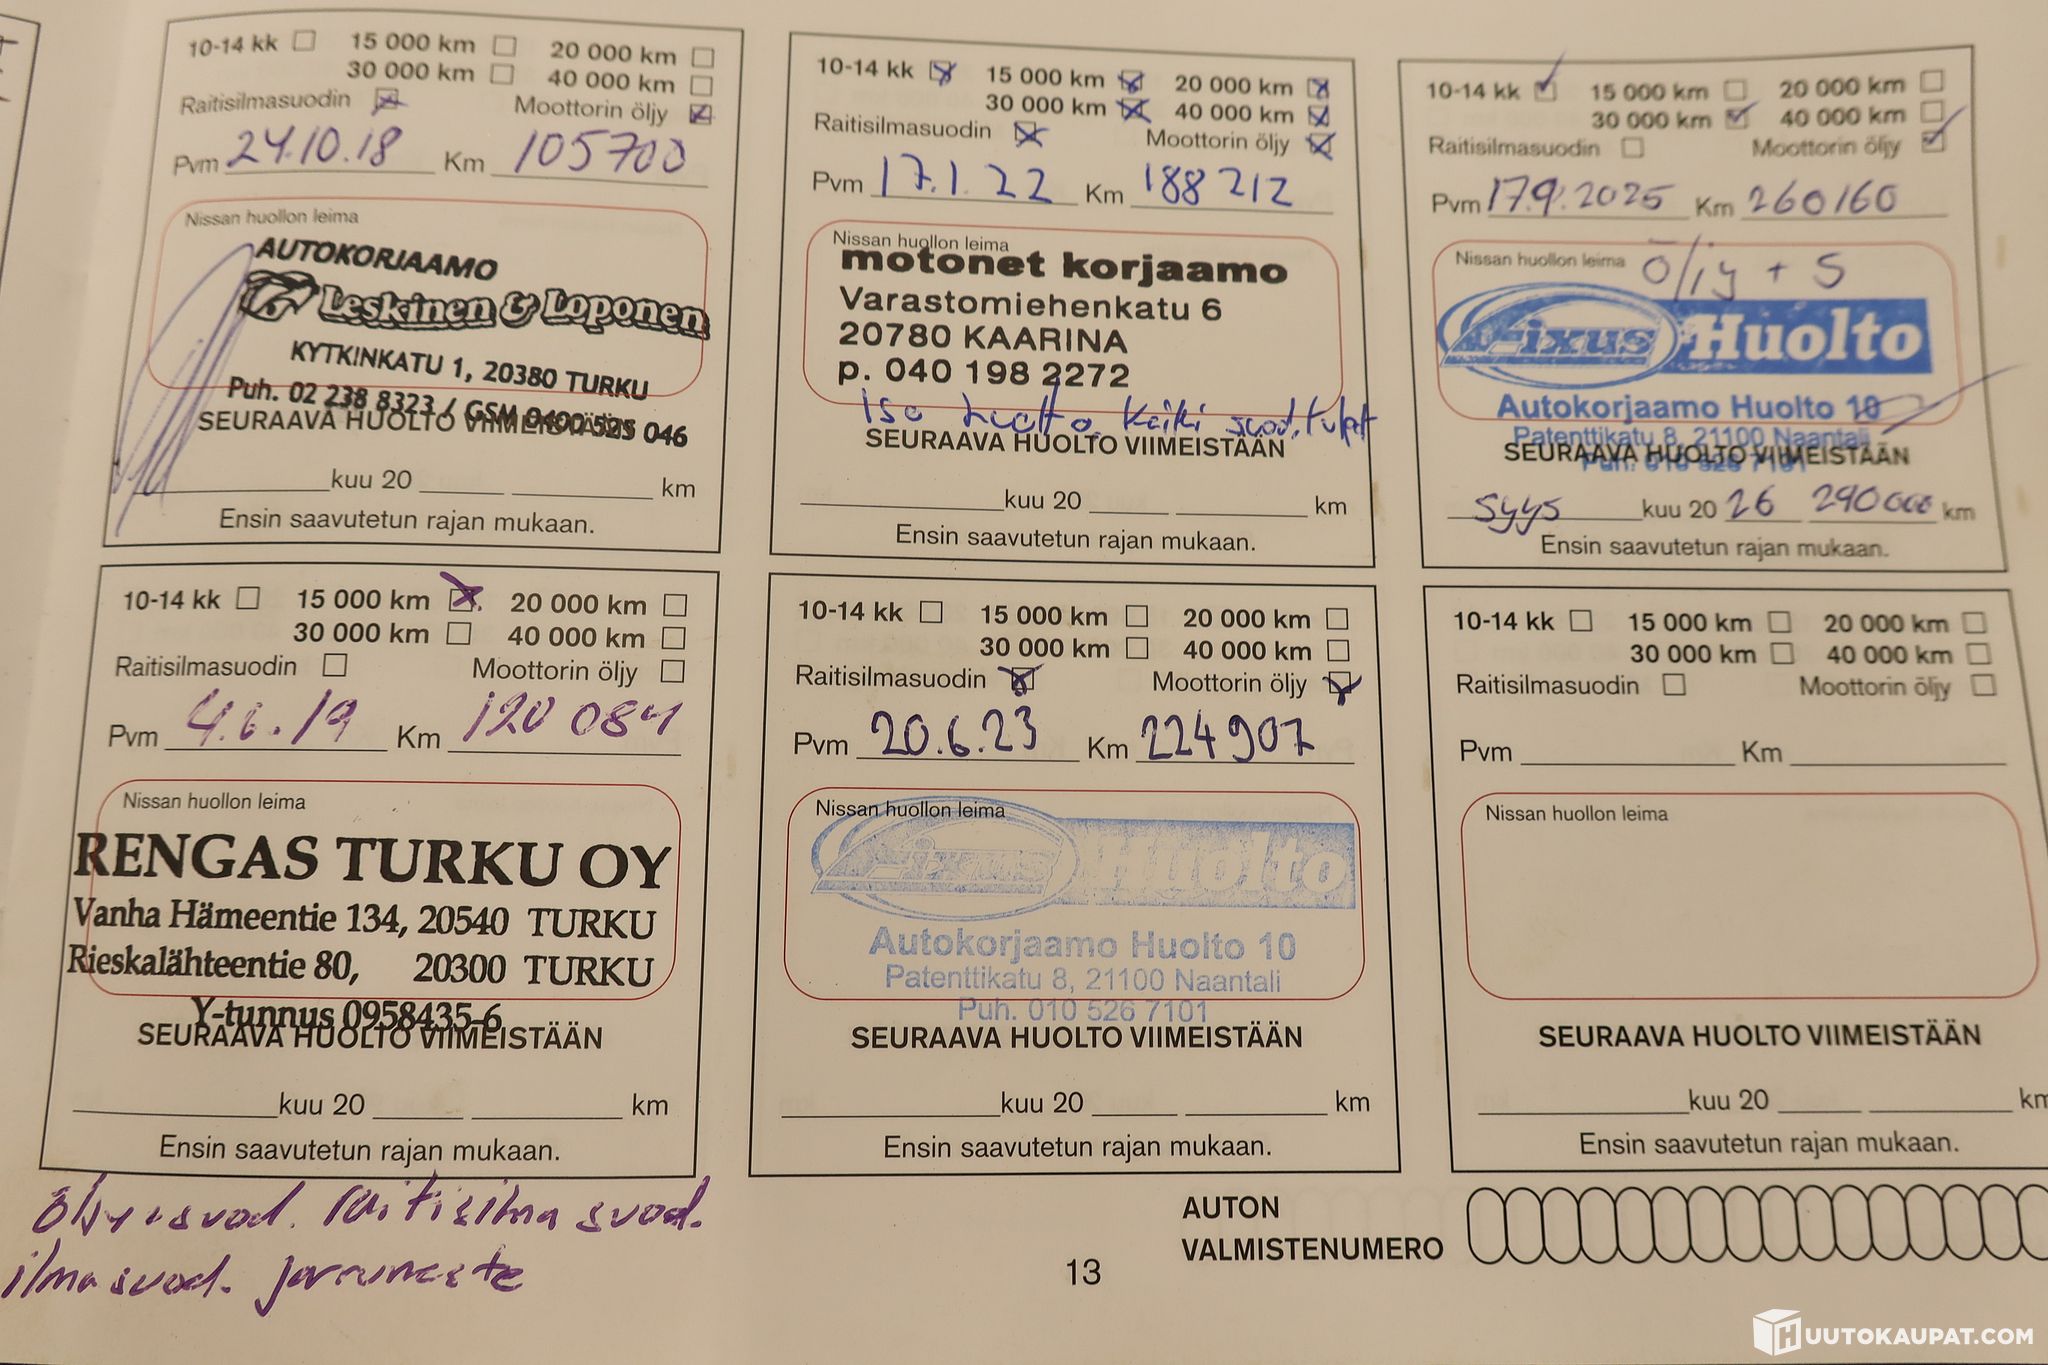 10-14 kk 15 000 km 20 000 km
30 000 km 40 000 km
Raitisilmasuodin Moottorin öljy
Pvm 24.10.18 Km 105700
Nissan huollon leima
AUTOKORJAAMO
Leskinen & Loponen
KYTKINKATU 1, 20380 TURKU
Puh. 02 238 8323 / GSM 0400 525 046
SEURAAVA HUOLTO VIIMEISTÄÄN
kuu 20 km
Ensin saavutetun rajan mukaan.
10-14 kk 15 000 km 20 000 km
30 000 km 40 000 km
Raitisilmasuodin Moottorin öljy
Pvm 4.6.19 Km 120 084
Nissan huollon leima
RENGAS TURKU OY
Vanha Hämeentie 134, 20540 TURKU
Rieskalähteentie 80, 20300 TURKU
Y-tunnus 0958435-6
SEURAAVA HUOLTO VIIMEISTÄÄN
kuu 20 km
Ensin saavutetun rajan mukaan.
öljy + suod. raitisilma suod.
ilmasuod. jarruneste
10-14 kk 15 000 km 20 000 km
30 000 km 40 000 km
Raitisilmasuodin Moottorin öljy
Pvm 17.1.22 Km 188 212
Nissan huollon leima
motonet korjaamo
Varastomiehenkatu 6
20780 KAARINA
p. 040 198 2272
iso huolto kaikki
SEURAAVA HUOLTO VIIMEISTÄÄN
kuu 20 km
Ensin saavutetun rajan mukaan.
10-14 kk 15 000 km 20 000 km
30 000 km 40 000 km
Raitisilmasuodin Moottorin öljy
Pvm 20.6.23 Km 224907
Nissan huollon leima
Fixus Huolto
Autokorjaamo Huolto 10
Patenttikatu 8, 21100 Naantali
Puh. 010 526 7101
SEURAAVA HUOLTO VIIMEISTÄÄN
kuu 20 km
Ensin saavutetun rajan mukaan.
10-14 kk 15 000 km 20 000 km
30 000 km 40 000 km
Raitisilmasuodin Moottorin öljy
Pvm 17.9.2025 Km 260160
Nissan huollon leima öljy + S
Fixus Huolto
Autokorjaamo Huolto 10
Patenttikatu 8, 21100 Naantali
Puh. 010 526 7101
SEURAAVA HUOLTO VIIMEISTÄÄN
syys kuu 20 26 290000 km
Ensin saavutetun rajan mukaan.
10-14 kk 15 000 km 20 000 km
30 000 km 40 000 km
Raitisilmasuodin Moottorin öljy
Pvm Km
Nissan huollon leima
SEURAAVA HUOLTO VIIMEISTÄÄN
kuu 20 km
Ensin saavutetun rajan mukaan.
AUTON
VALMISTENUMERO
13
HUUTOKAUPAT.COM